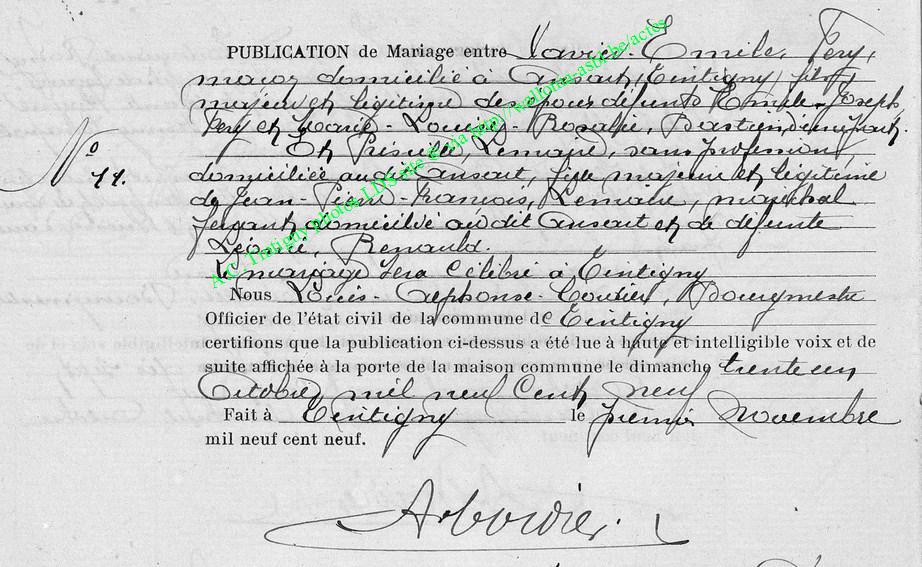 PUBLICATION de Mariage entre Xavier-Emile, Fery,
maçon, domicilié à Ansart, (Tintigny) fils
majeur et légitime des époux défunts Emile-Joseph,
Fery et Marie-Louise-Rosalie, Bastien d'une part.
Et Lemaire, sans profession
No 11.
domiciliée au dit Ansart, fille majeure et légitime
de Jean-Pierre-François, Lemaire, maréchal
ferrant, domicilié au dit Ansart et de défunte
Léonie, Renauld.
Le mariage sera célébré à Tintigny
Nous Louis-Alphonse Bourgmestre
Officier de l'état civil de la commune de Tintigny
certifions que la publication ci-dessus a été lue à haute et intelligible voix et de
suite affichée à la porte de la maison commune le dimanche trente un
Octobre mil neuf cent neuf
Fait à Tintigny le premier Novembre
mil neuf cent neuf.
A.C. Tintigny photos LDS site de http://wallonia-asbl.be/actes